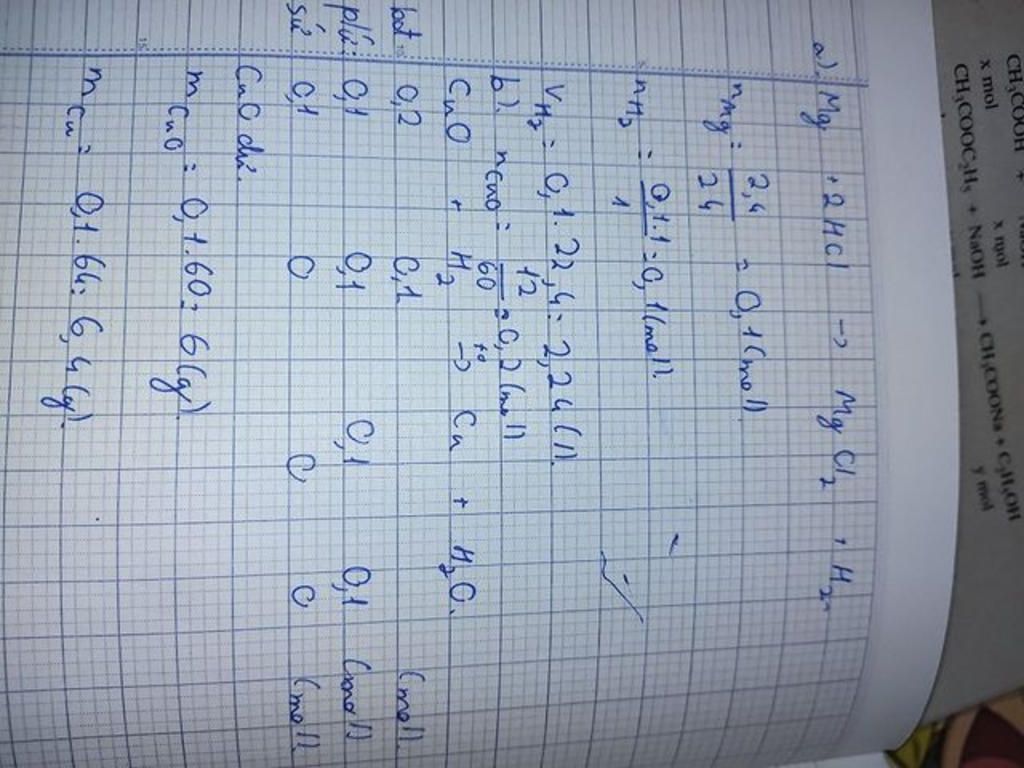 CH₃COOH +
x mol x mol
CH₃COOC₂H₅ + NaOH → CH₃COONa + C₂H₅OH
y mol
a). Mg + 2HCl → MgCl₂ + H₂
nMg = 2,4/24 = 0,1 (mol)
nH₂ = 0,1.1/1 = 0,1 (mol).
VH₂ = 0,1.22,4 = 2,24 (l).
b). nCuO = 12/60 = 0,2 (mol)
CuO + H₂ t° → Cu + H₂O.
bđ 0,2 0,1 (mol).
p/ứ: 0,1 0,1 0,1 0,1 (mol)
sú 0,1 0 0 0 (mol).
CuO dư.
mCuO = 0,1.60 = 6 (g).
mCu = 0,1.64 = 6,4 (g).